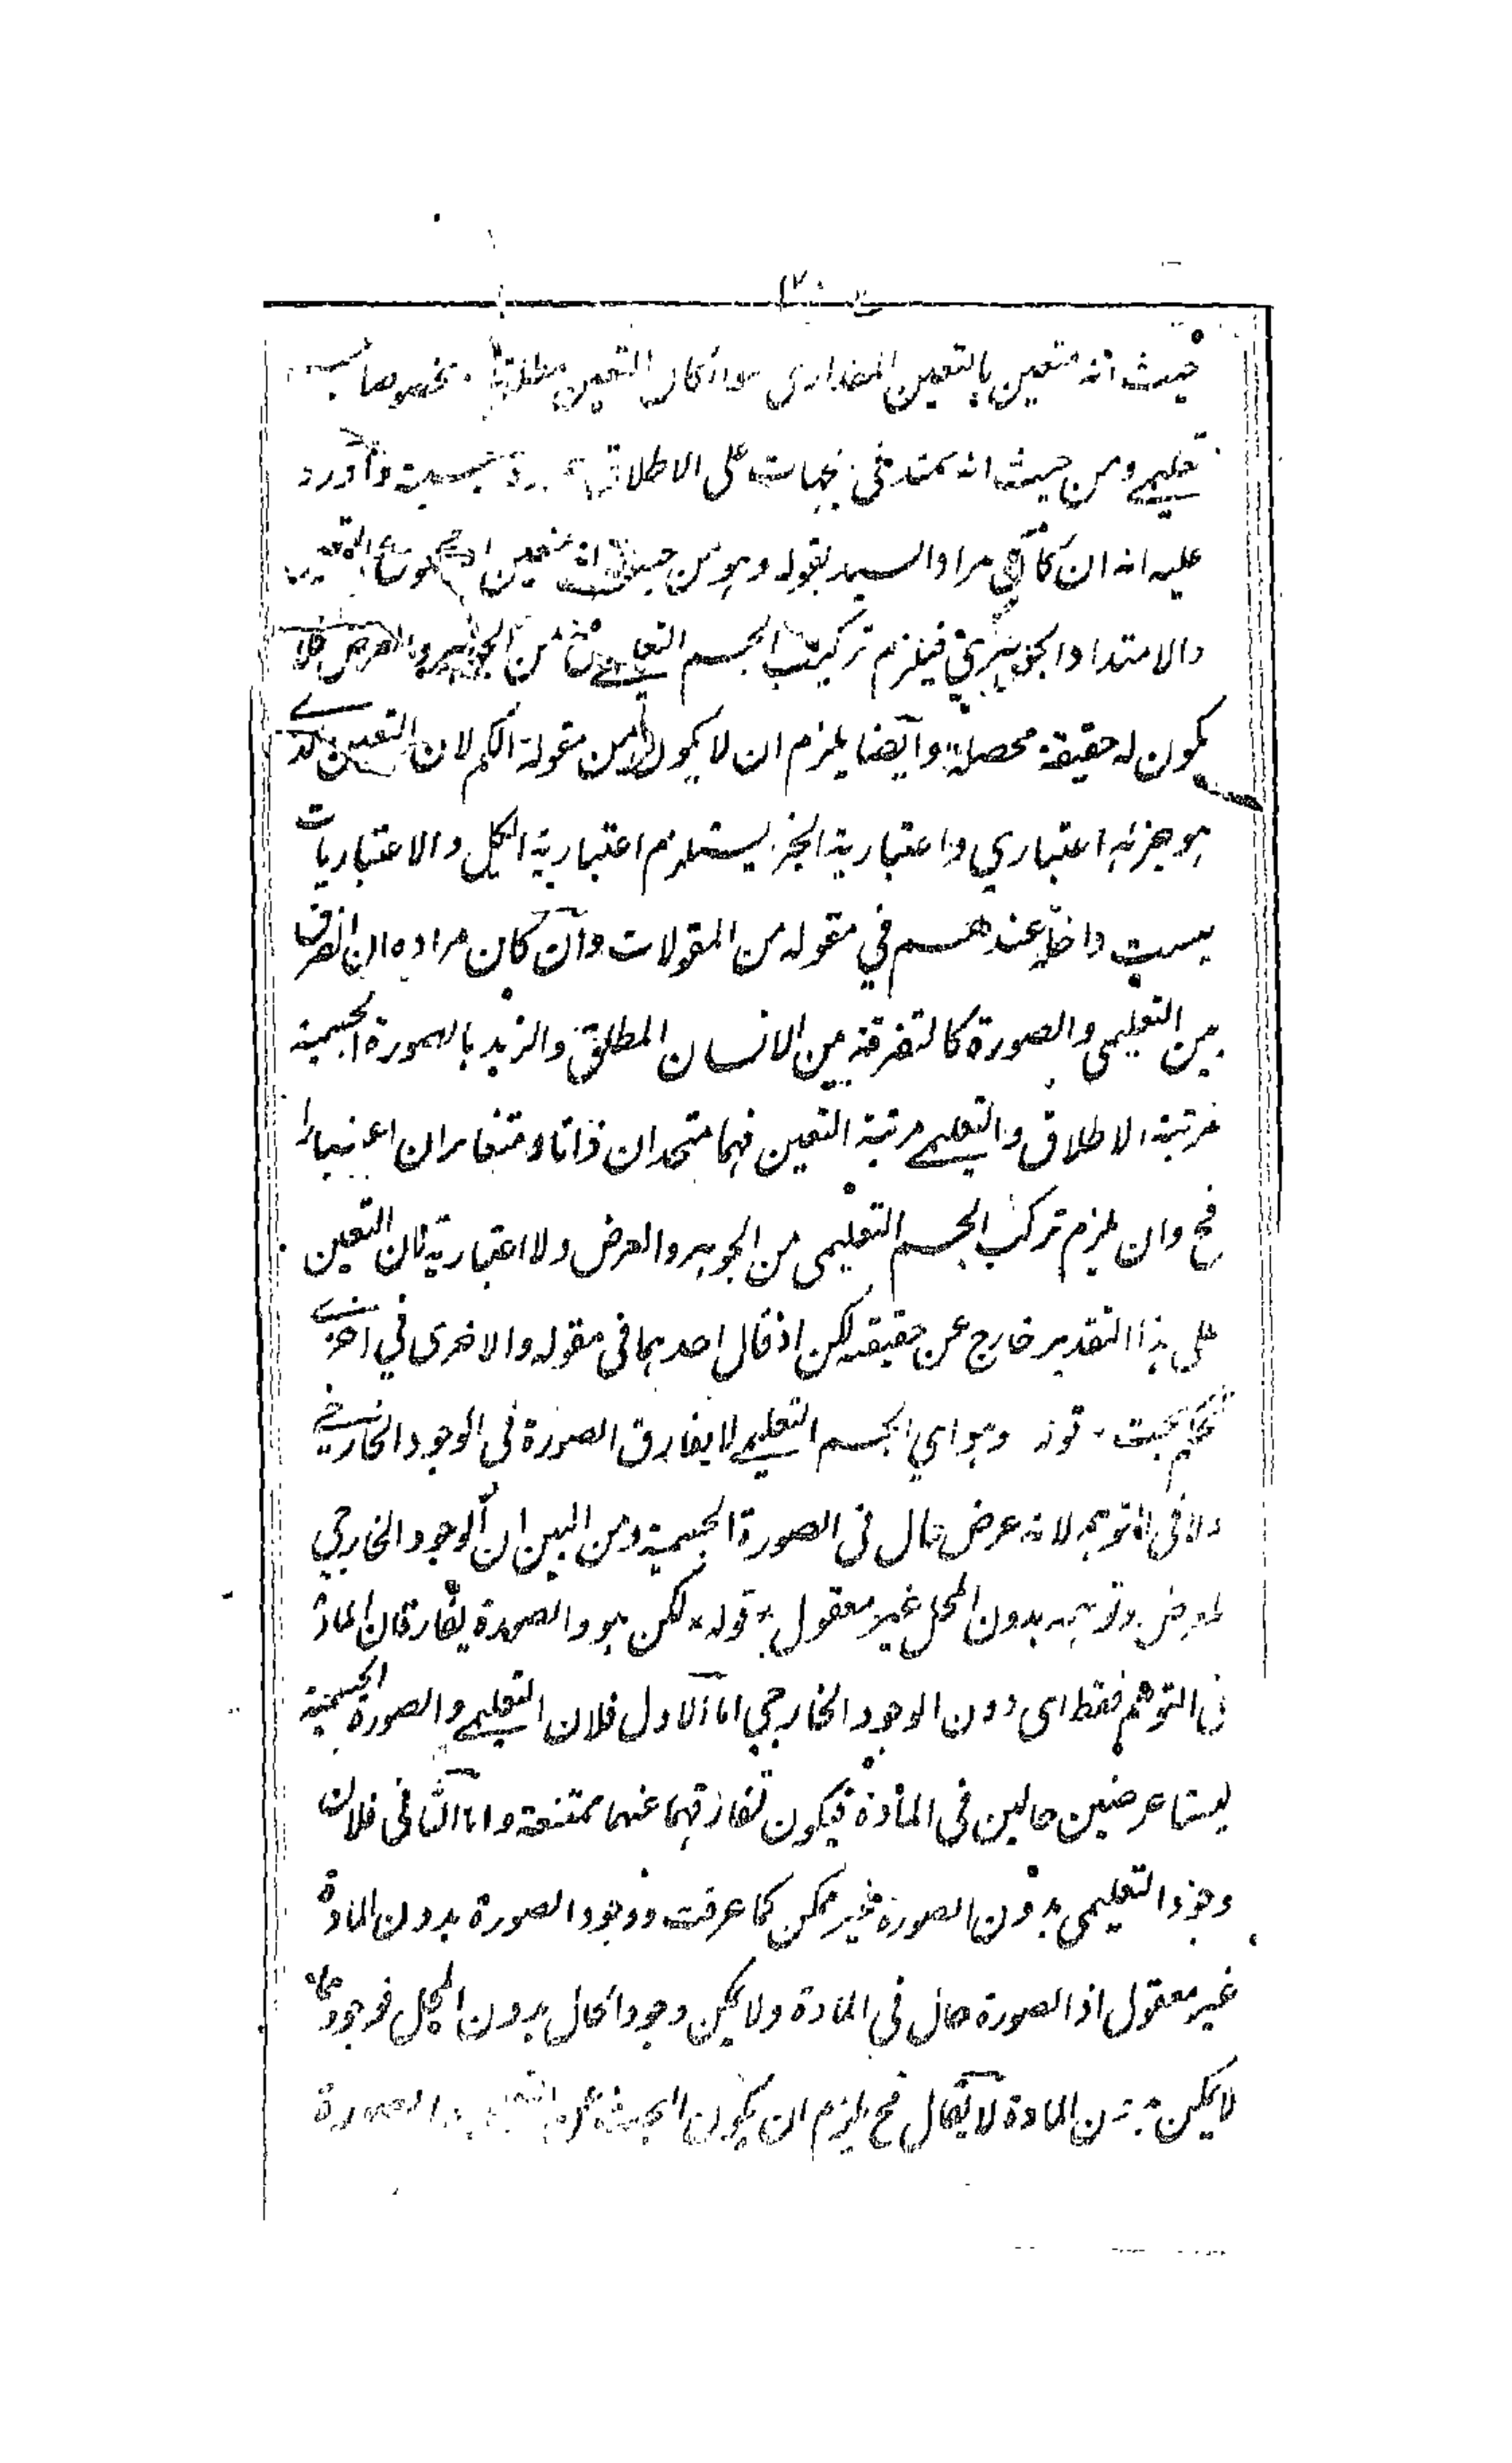 حيث انه متعين بالتعين المقداري سواء كان التعين مطلقا او مخصوصا
تعليمي ومن حيث انه ممتد في الجهات على الاطلاق صورة جسمية واورد
عليه انه ان كان مراد السيد بقوله وهو من حيث انه متعين
والامتداد الجوهري فيلزم تركيب الجسم التعليمي من الجوهر والعرض فلا
يكون له حقيقة محصلة وايضا يلزم ان لا يكون من مقولة الكم لان التعين الذي
هو جزئه اعتباري واعتبارية الجزء يستلزم اعتبارية الكل والاعتباريات
ليست داخلة عندهم في مقولة من المقولات وان كان مراده ان الفرق
بين التعليمي والصورة كالتفرقة بين الانسان المطلق والزيد بالصورة الجسمية
مرتبة الاطلاق والتعليمي مرتبة التعين فهما متحدان ذاتا ومتغايران اعتبارا
فح وان لم يلزم تركب الجسم التعليمي من الجوهر والعرض ولا اعتباريته لان التعين
على هذا التقدير خارج عن حقيقته لكن ادخال احدهما في مقولة والاخرى في اخرى
تحكم بحت قوله وهو اي الجسم التعليمي لا يفارق الصورة في الوجود الخارجي
ولا في التوهم لانه عرض حال في الصورة الجسمية ومن البين ان الوجود الخارجي
للعرض وتوهمه بدون المحل غير معقول قوله لكن هو والصورة يفارقان المادة
في التوهم فقط اي دون الوجود الخارجي اما الاول فلان التعليمي والصورة الجسمية
ليستا عرضين حالين في المادة فيكون تفارقهما عنهما ممتنعة واما الثاني فلان
وجود التعليمي بدون الصورة غير ممكن كما عرفت ووجود الصورة بدون المادة
غير معقول اذ الصورة حال في المادة ولا يمكن وجود الحال بدون المحل فوجودهما
لا يمكن بدون المادة لا يقال فح يلزم ان يكون البحث عن التعليمي والصورة